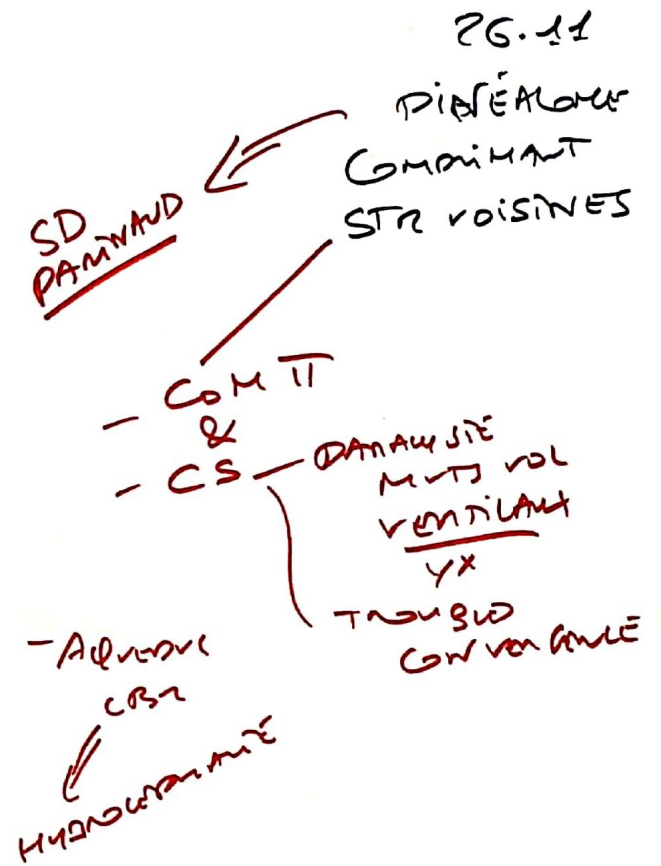 26.11
PINÉALOME
COMPRIMANT
STR VOISINES
SD
PARINAUD
- COM II
&
- CS - PARALYSIE
MVTS VOL
VERTICAUX
YX
TROUBLE
CONVERGENCE
- AQUEDUC
CBR
HYDROCÉPHALIE